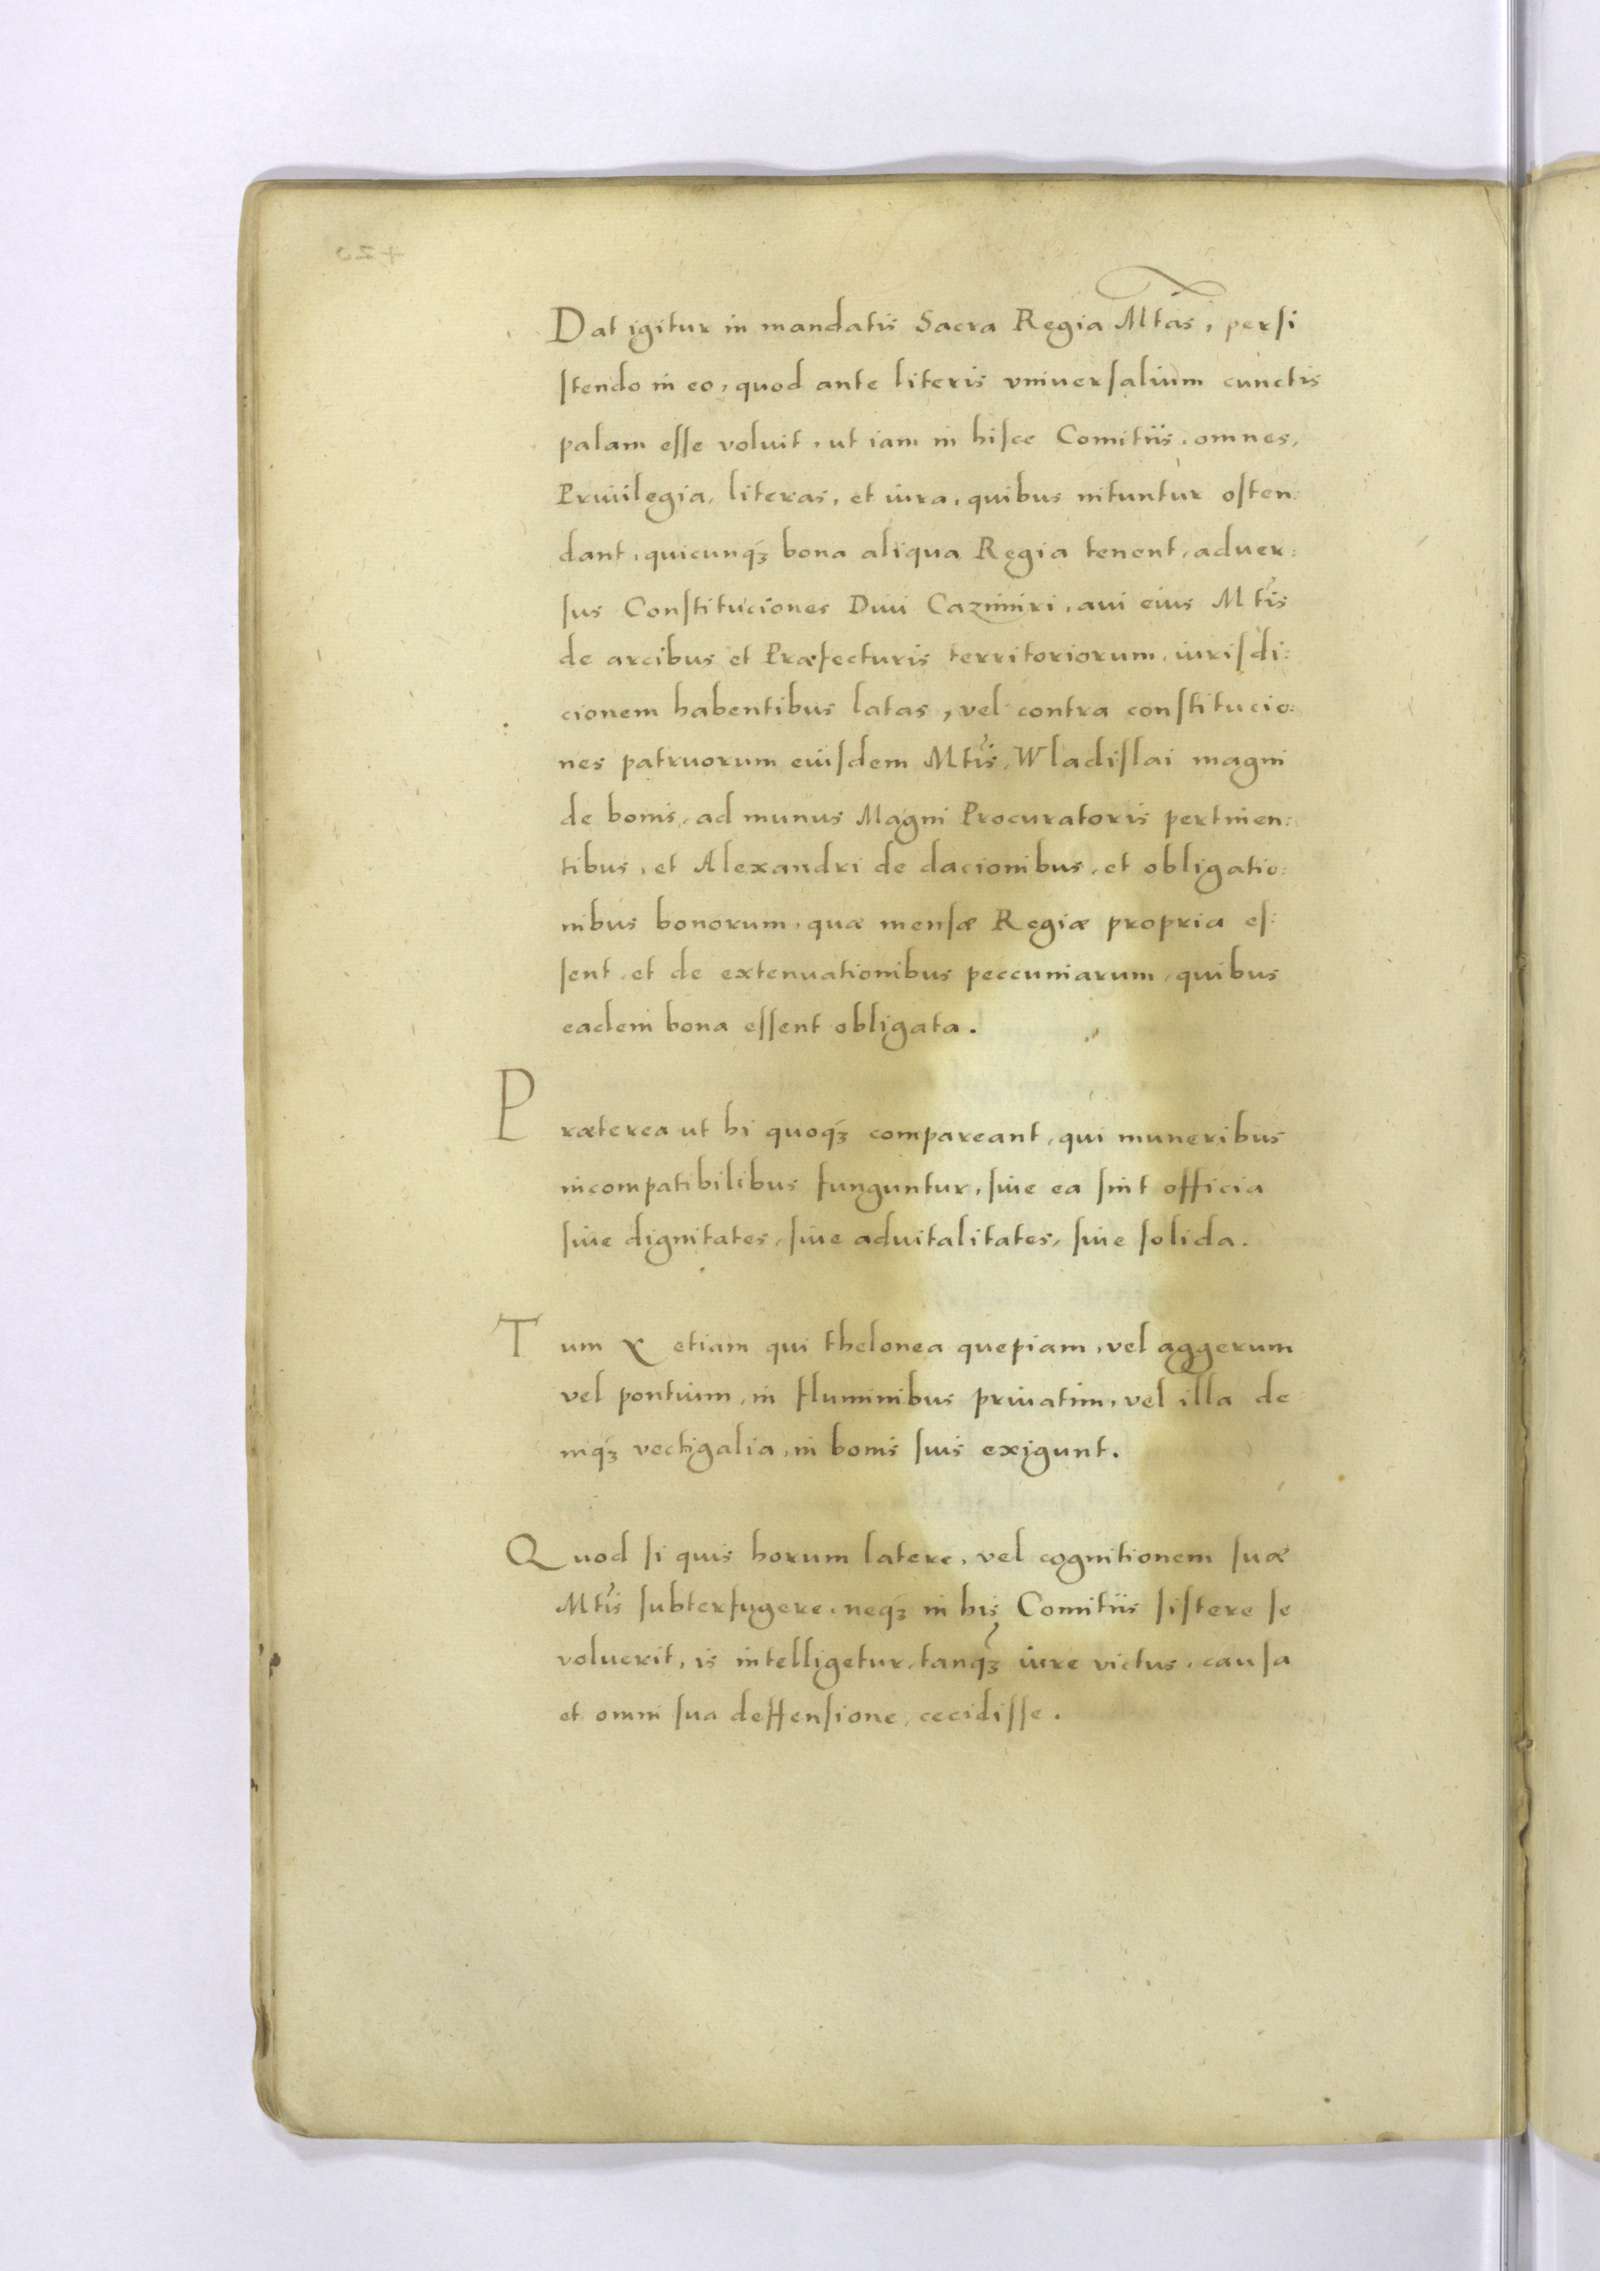 Dat igitur in mandatis Sacra Regia Mtas, persi
stendo in eo, quod ante literis vniuersalium cunctis
palam esse voluit, ut iam in hisce Comitiis, omnes,
Priuilegia, literas, et iura, quibus nituntur osten:
dant, quicunqȝ bona aliqua Regia tenent, aduer:
sus Constituciones Diui Cazimiri, aui eius Mtis
de arcibus et Præfecturis territoriorum, iurisdi:
cionem habentibus latas, vel contra constitucio:
nes patruorum eiusdem Mtis, Wladislai magni
de bonis, ad munus Magni Procuratoris pertinen:
tibus, et Alexandri de dacionibus, et obligatio:
nibus bonorum, quæ mensæ Regiæ propria es:
sent, et de extenuationibus peccuniarum, quibus
eadem bona essent obligata.
Præterea ut hi quoqȝ compareant, qui muneribus
incompatibilibus funguntur, siue ea sint officia
siue dignitates, siue aduitalitates, siue solida.
Tum etiam qui thelonea quepiam, vel aggerum
vel pontium, in fluminibus priuatim, vel illa de
niqȝ vectigalia, in bonis suis exigunt.
Quod si quis horum latere, vel cognitionem suæ
Mtis subterfugere, neqȝ in his Comitiis sistere se
voluerit, is intelligetur, tanqȝ iure victus, causa
et omni sua deffensione, cecidisse.